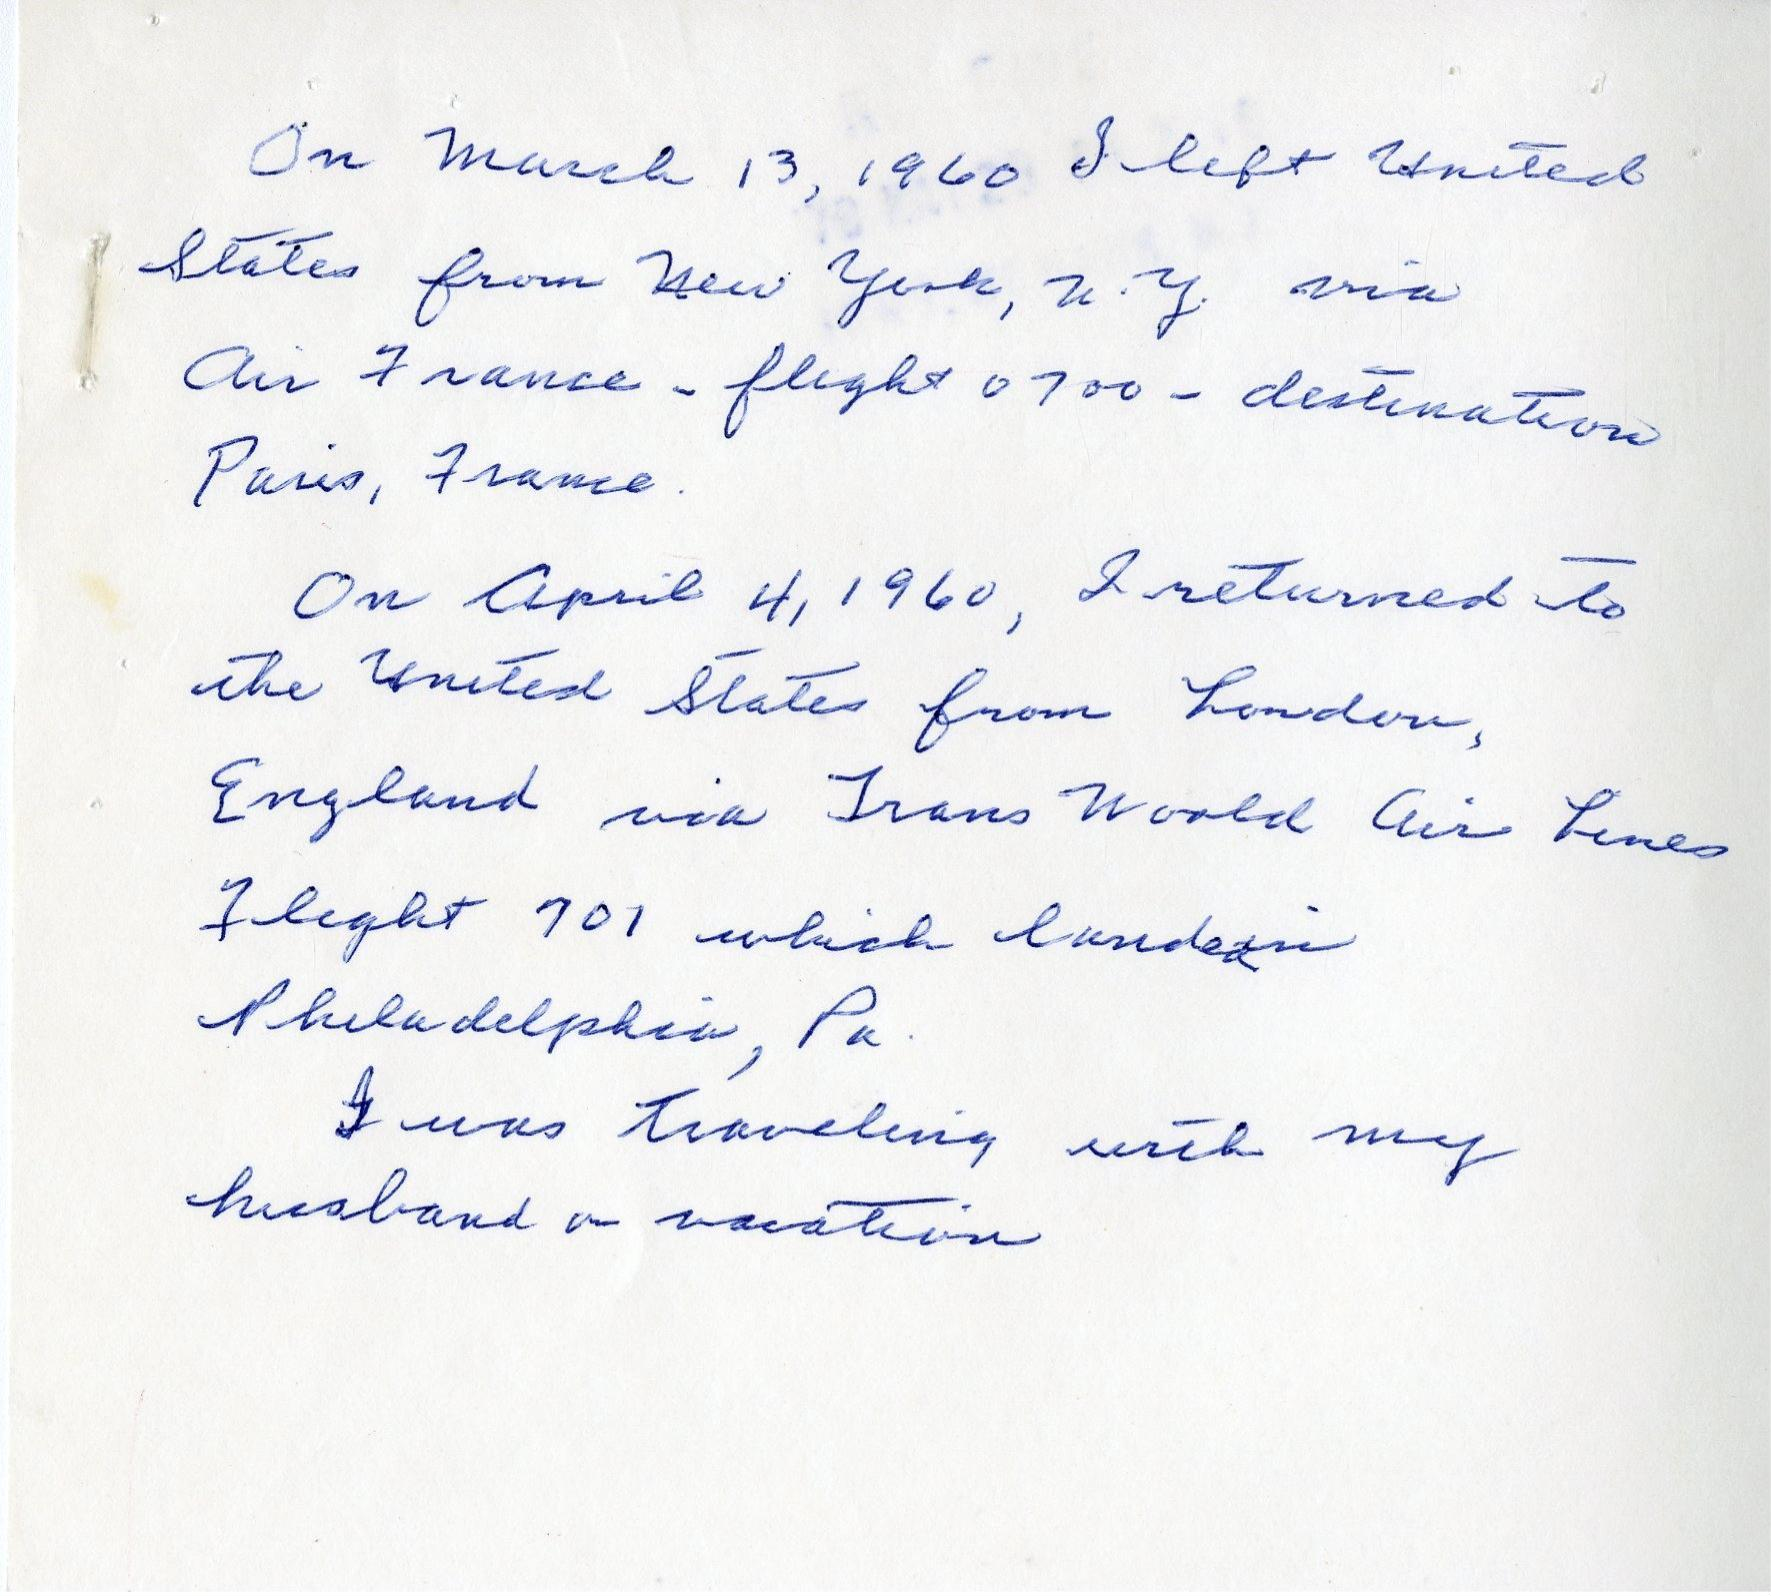 On March 13, 1960 I left United
States from New York, N.Y. via
Air France - flight 0700 - destination
Paris, France.
On April 4, 1960, I returned to
the United States from London,
England via Trans World Air Lines
Flight 701 which landed in
Philadelphia, Pa.
I was traveling with my
husband on vacation